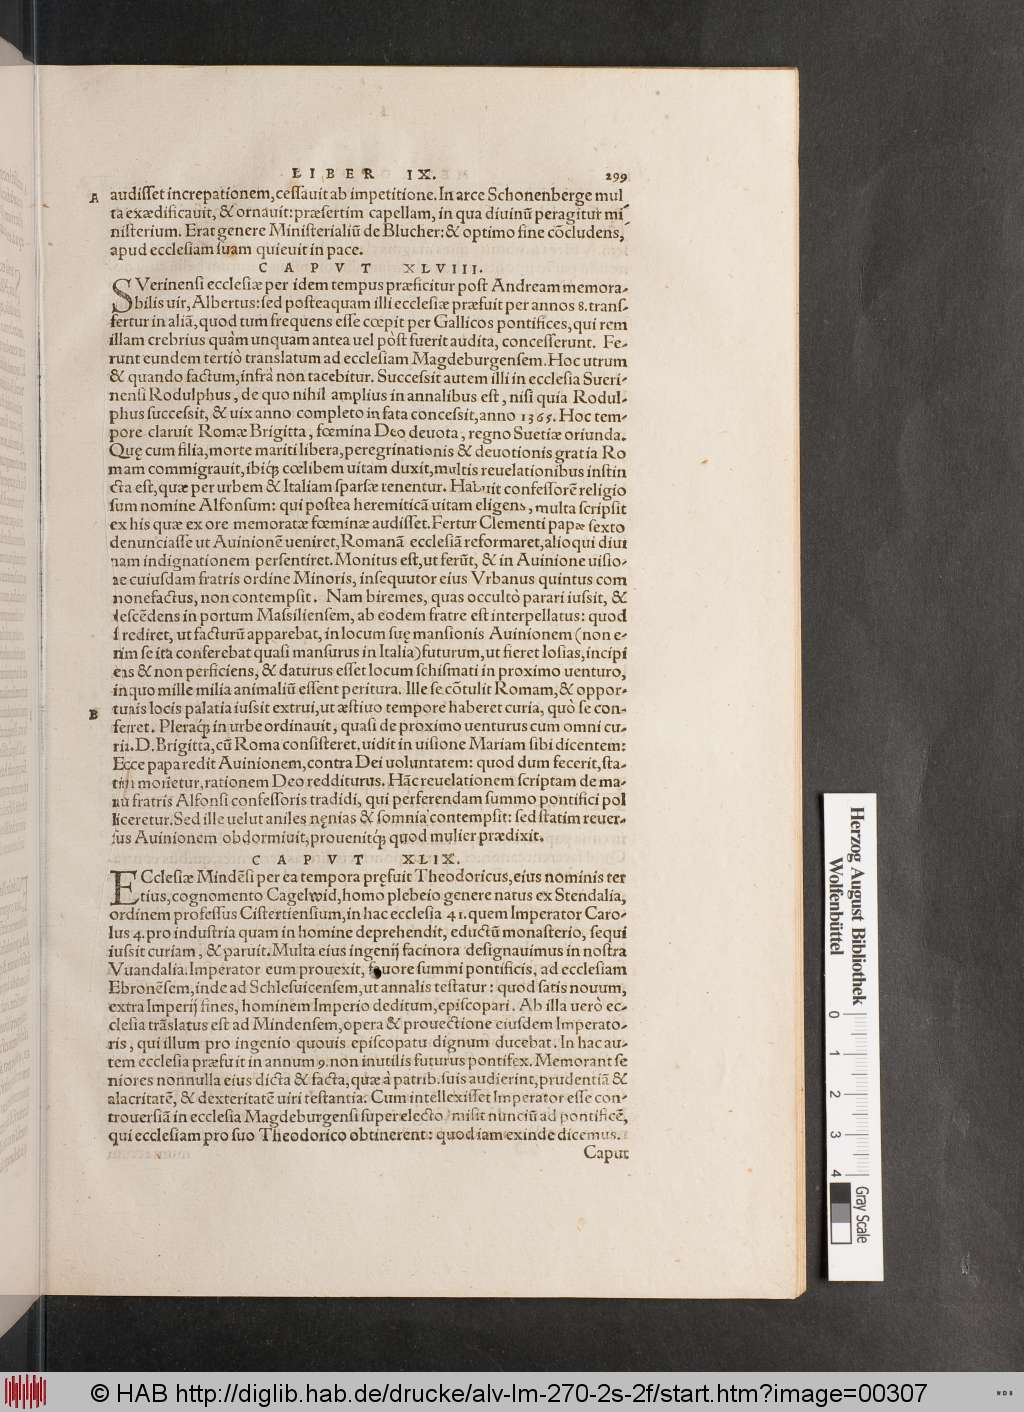 LIBER IX. 299
A audisset increpationem, cessauit ab impetitione. In arce Schonenberge mul
ta exædificauit, & ornauit: præsertim capellam, in qua diuinũ peragitur mi-
nisterium. Erat genere Ministerialiũ de Blucher: & optimo fine cõcludens,
apud ecclesiam suam quieuit in pace.
CAPVT XLVIII.
SVerinensi ecclesiæ per idem tempus præficitur post Andream memora-
bilis uir, Albertus: sed posteaquam illi ecclesiæ præfuit per annos 8. trans-
fertur in aliã, quod tum frequens esse cœpit per Gallicos pontifices, qui rem
illam crebrius quàm unquam antea uel pòst fuerit audita, concesserunt. Fe-
runt eundem tertiò translatum ad ecclesiam Magdeburgensem. Hoc utrum
& quando factum, infrà non tacebitur. Successit autem illi in ecclesia Sueri-
nensi Rodulphus, de quo nihil amplius in annalibus est, nisi quia Rodul-
phus successit, & uix anno completo in fata concessit, anno 1365. Hoc tem-
pore claruit Romæ Brigitta, fœmina Deo deuota, regno Suetiæ oriunda.
Quę cum filia, morte mariti libera, peregrinationis & deuotionis gratia Ro
mam commigrauit, ibiq́; cœlibem uitam duxit, multis reuelationibus instin
cta est, quæ per urbem & Italiam sparsæ tenentur. Habuit confessorẽ religio
sum nomine Alfonsum: qui postea heremiticã uitam eligens, multa scripsit
ex his quæ ex ore memoratæ fœminæ audisset. Fertur Clementi papæ sexto
denunciasse ut Auinionẽ ueniret, Romanã ecclesiã reformaret, alioqui diui
nam indignationem persentiret. Monitus est, ut ferũt, & in Auinione uisio-
ne cuiusdam fratris ordine Minoris, insequutor eius Vrbanus quintus com
monefactus, non contempsit. Nam biremes, quas occultò parari iussit, &
descẽdens in portum Massiliensem, ab eodem fratre est interpellatus: quod
si rediret, ut facturũ apparebat, in locum suę mansionis Auinionem (non e-
nim se ita conferebat quasi mansurus in Italia) futurum, ut fieret Iosias, incipi
ens & non perficiens, & daturus esset locum schismati in proximo uenturo,
in quo mille milia animaliũ essent peritura. Ille se cõtulit Romam, & oppor-
B tunis locis palatia iussit extrui, ut æstiuo tempore haberet curia, quò se con-
ferret. Pleraq́; in urbe ordinauit, quasi de proximo uenturus cum omni cu-
ria. D. Brigitta, cũ Roma consisteret, uidit in uisione Mariam sibi dicentem:
Ecce papa redit Auinionem, contra Dei uoluntatem: quod dum fecerit, sta-
tim morietur, rationem Deo redditurus. Hãc reuelationem scriptam de ma-
nũ fratris Alfonsi confessoris tradidi, qui perferendam summo pontifici pol
liceretur. Sed ille uelut aniles nęnias & somnia contempsit: sed statim reuer-
sus Auinionem obdormiuit, prouenitq́; quod mulier prædixit.
CAPVT XLIX.
ECclesiæ Mindẽsi per ea tempora pręfuit Theodoricus, eius nominis ter
tius, cognomento Cagelwid, homo plebeio genere natus ex Stendalia,
ordinem professus Cistertiensium, in hac ecclesia 41. quem Imperator Caro-
lus 4. pro industria quam in homine deprehendit, eductũ monasterio, sequi
iussit curiam, & paruit. Multa eius ingenij facinora designauimus in nostra
Vuandalia. Imperator eum prouexit, fauore summi pontificis, ad ecclesiam
Ebronẽsem, inde ad Schlesuicensem, ut annalis testatur: quod satis nouum,
extra Imperij fines, hominem Imperio deditum, episcopari. Ab illa uerò ec-
clesia trãslatus est ad Mindensem, opera & prouectione eiusdem Imperato-
ris, qui illum pro ingenio quouis episcopatu dignum ducebat. In hac au-
tem ecclesia præfuit in annum 9. non inutilis futurus pontifex. Memorant se
niores nonnulla eius dicta & facta, quæ à patrib. suis audierint, prudentiã &
alacritatẽ, & dexteritatẽ uiri testantia. Cum intellexisset Imperator esse con-
trouersiã in ecclesia Magdeburgensi super electo misit nunciũ ad pontificẽ,
qui ecclesiam pro suo Theodorico obtinerent: quod iam exinde dicemus.
Caput
Herzog August Bibliothek
Wolfenbüttel
0 1 2 3 4
Gray Scale
© HAB http://diglib.hab.de/drucke/alv-lm-270-2s-2f/start.htm?image=00307